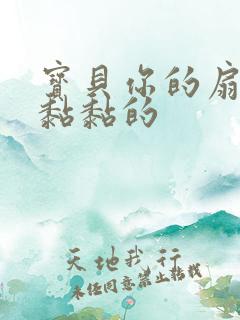 寶貝你的扇
黏黏的
天地我行
未經同意禁止轉載